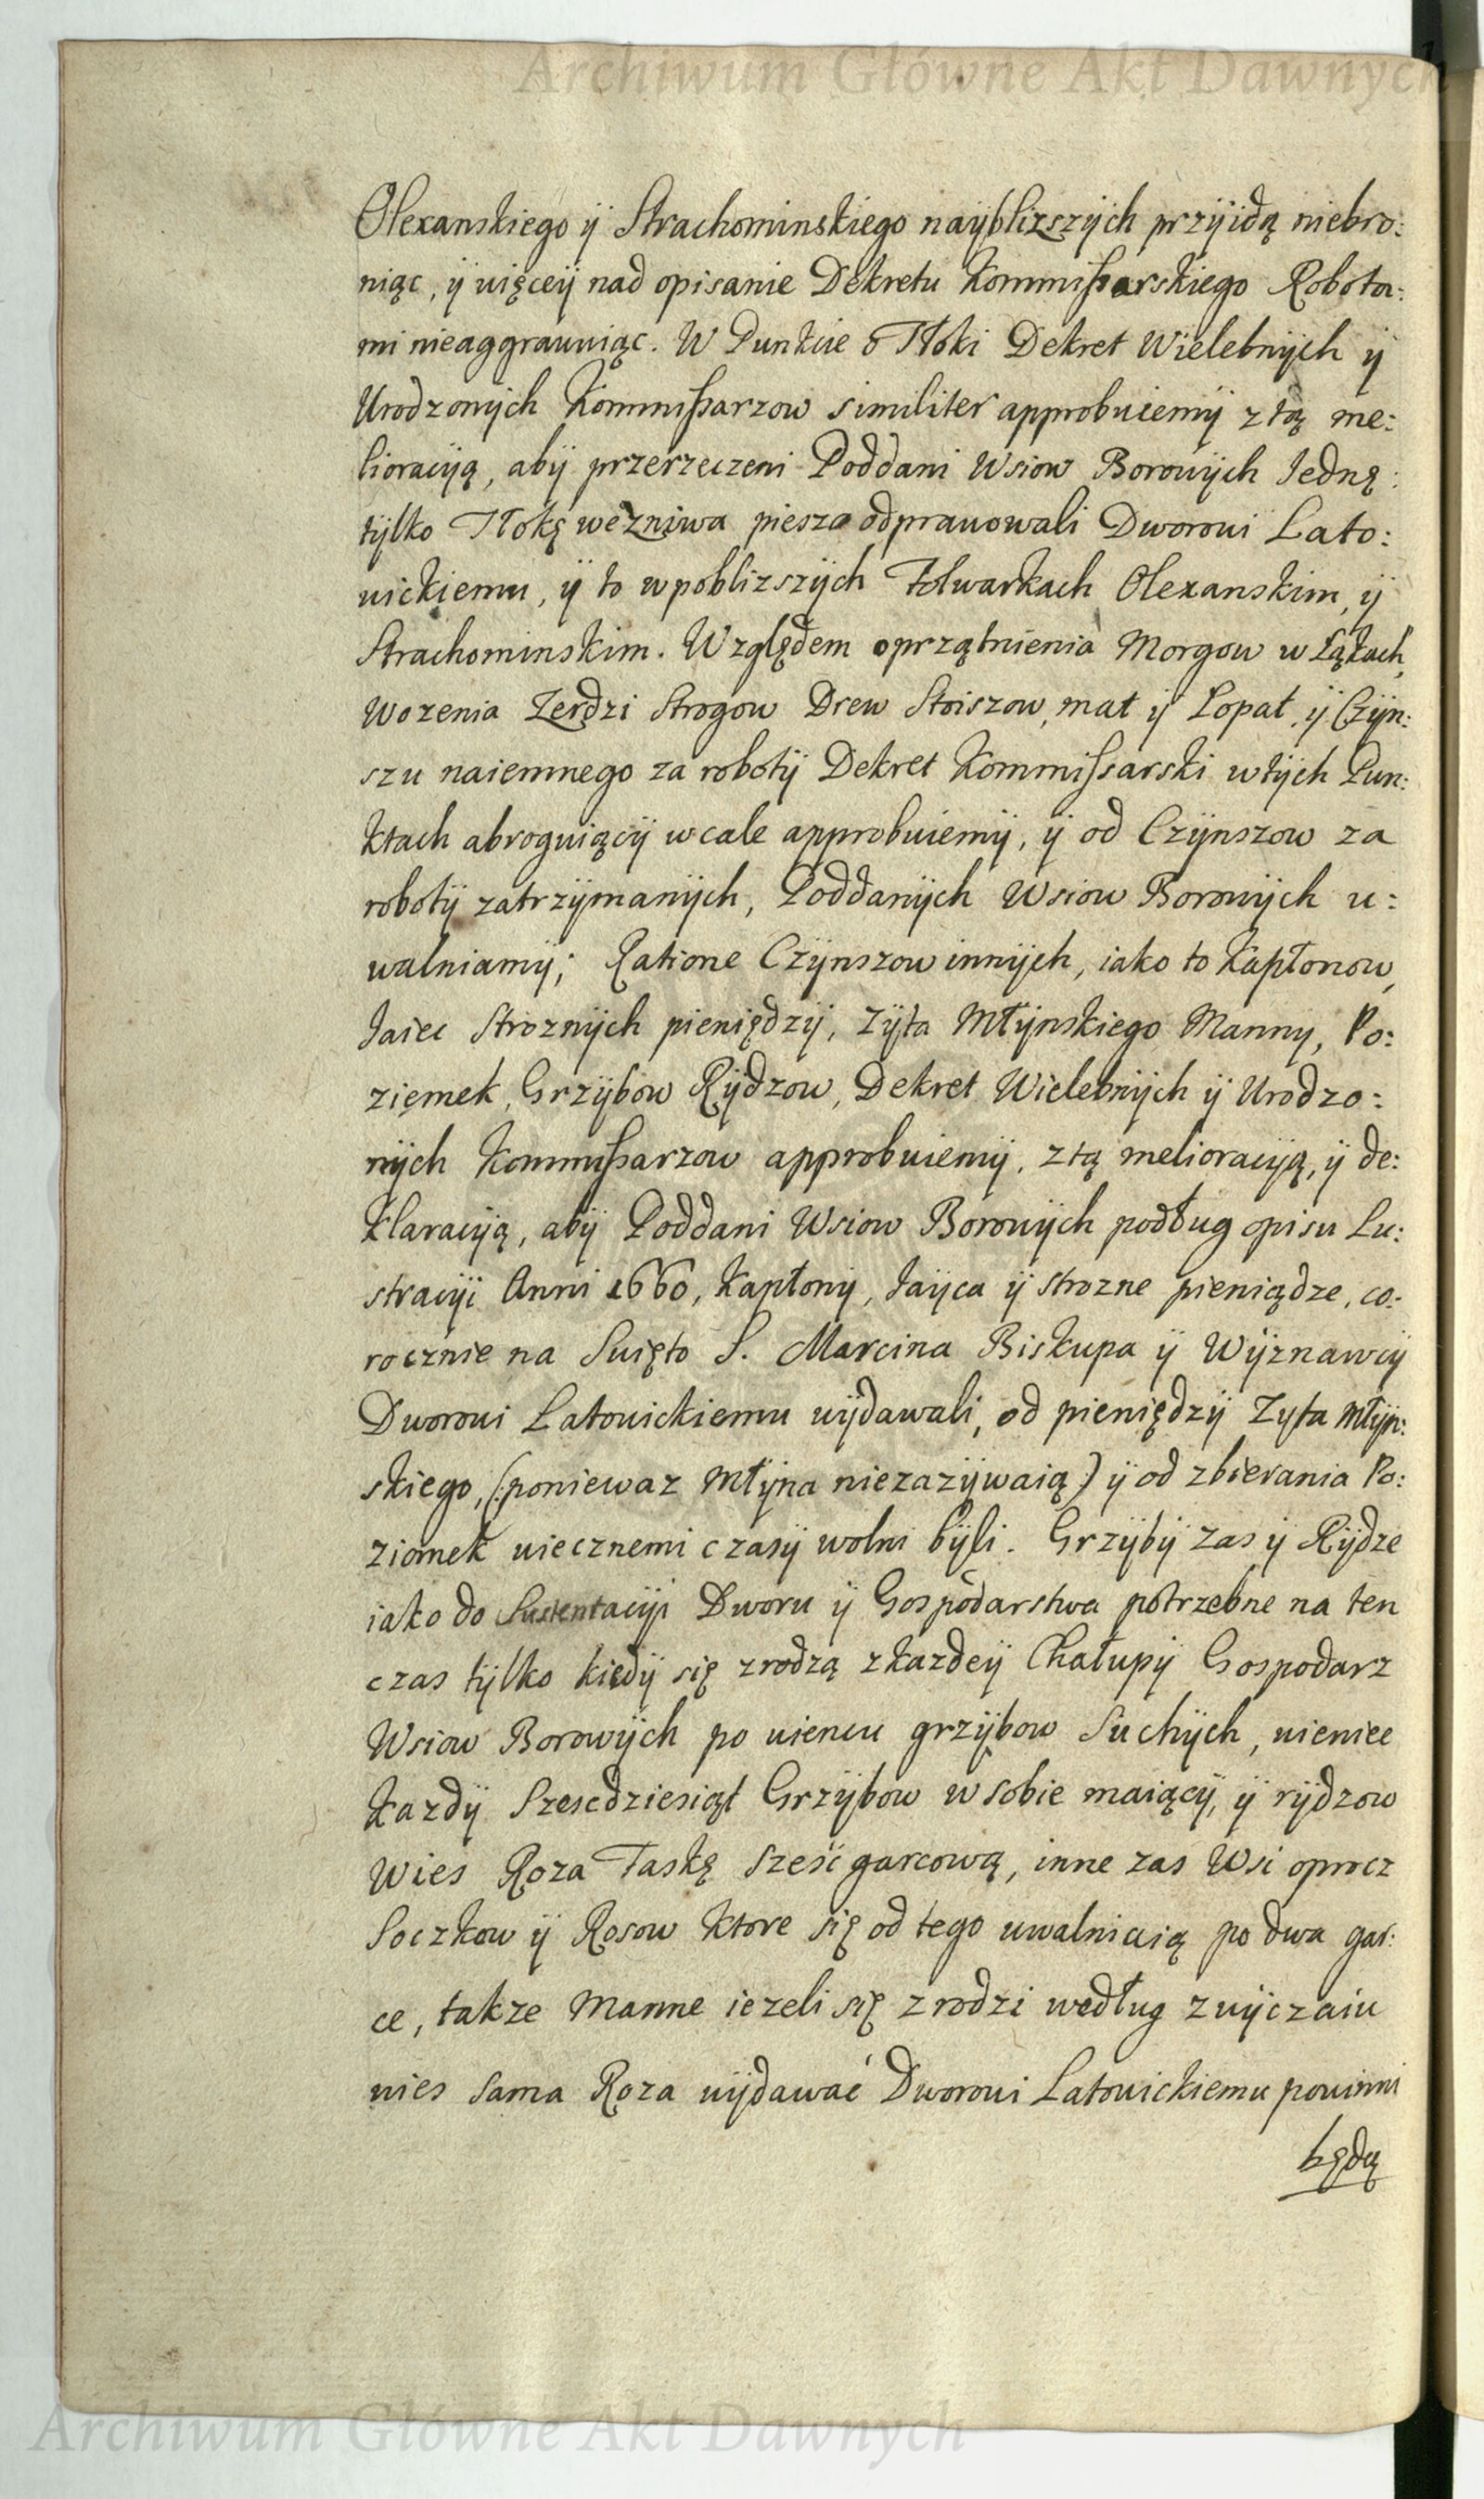 Archiwum Główne Akt Dawnych
Olexanskiego ÿ Strachominskiego naÿblizszÿch przÿidą niebro:
niąc, ÿ więceÿ nad opisanie Dekretu Kommissarskiego Robota:
mi nieaggrawuiąc. W Punkcie o Tłoki Dekret Wielebnÿch ÿ
Urodzonÿch Kommissarzow similiter approbuiemÿ z tą me:
lioracÿą, abÿ przerzeczeni Poddani Wsiow Borowÿch Iedną:
tÿlko Tłokę weżniwa piesza odprawowali Dworowi Lato:
wickiemu, ÿ to w poblizszÿch Folwarkach Olexanskim, ÿ
Strachominskim. Względem oprzątnienia Morgow w Łąkach,
Wozenia Zerdzi Strogow Drew Stoiszow, mat ÿ Lopat, ÿ Czÿn:
szu naiemnego za robotÿ Dekret Kommissarski w tÿch Pun:
ktach abroguiącÿ wcale approbuiemÿ, ÿ od Czÿnszow za
robotÿ zatrzÿmanÿch, Poddanÿch Wsiow Borowÿch u:
walniamÿ; Ratione Czÿnszow innÿch, iako to Kapłonow,
Iaiec Stroznÿch pieniędzÿ, Zÿta Młÿnskiego Manny, Po:
ziemek, Grzÿbow Rÿdzow, Dekret Wielebnÿch ÿ Urodzo:
nÿch Kommissarzow approbuiemÿ, z tą melioracÿą, ÿ de:
klaracÿą, abÿ Poddani Wsiow Borowÿch podług opisu Lu:
stracÿi Anni 1660, Kapłonÿ, Iaÿca ÿ strozne pieniądze, co:
rocznie na Swięto S. Marcina Biskupa ÿ Wÿznawcÿ
Dworowi Latowickiemu wÿdawali, od pieniędzÿ Zyta Młÿn:
skiego, (: poniewaz Młÿna niezazÿwaią) ÿ od zbierania Po:
ziomek wiecznemi czasÿ wolni bÿli. Grzÿbÿ zas ÿ Rÿdze
iako do Sustentacÿi Dworu ÿ Gospodarstwa potrzebne na ten
czas tÿlko kiedÿ się zrodzą z kazdeÿ Chałupÿ Gospodarz
Wsiow Borowÿch po wiencu grzÿbow Suchÿch, wieniec
kazdÿ Szescdziesiąt Grzÿbow w sobie maiącÿ, ÿ rÿdzow
Wies Roza Faskę sześć garcową, inne zas Wsi oprocz
Soczkow ÿ Rosow ktore się od tego uwalniaią po dwa gar:
ce, takze Manne iezeli się zrodzi według zwÿczaiu
wies sama Roza wÿdawać Dworowi Latowickiemu powinni
będą
Archiwum Główne Akt Dawnych